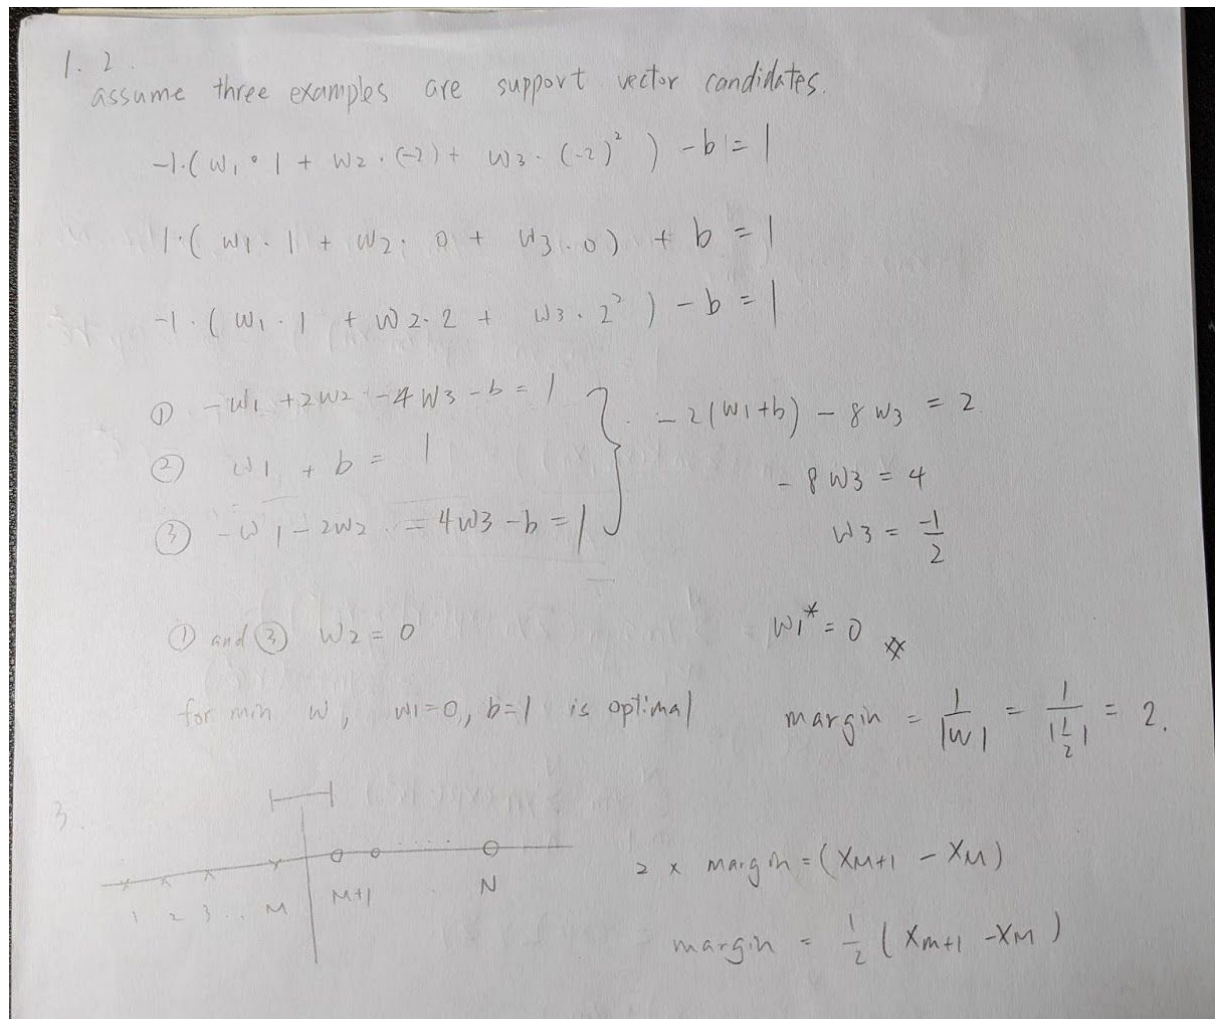 1. 2.
assume three examples are support vector candidates.
-1·(w₁ · 1 + w₂ · (-2) + w₃ · (-2)²) - b = 1
1·(w₁ · 1 + w₂ · 0 + w₃ · 0) + b = 1
-1 · (w₁ · 1 + w₂ · 2 + w₃ · 2²) - b = 1
① -w₁ + 2w₂ - 4w₃ - b = 1
② w₁ + b = 1
③ -w₁ - 2w₂ - 4w₃ - b = 1
-2(w₁+b) - 8w₃ = 2
-8w₃ = 4
w₃ = -1/2
① and ③ w₂ = 0
w₁* = 0
for min w, w₁=0, b=1 is optimal
margin = 1/|w| = 1/|1/2| = 2.
3.
1 2 3 .. M M+1 . N
2 x margin = (X_{M+1} - X_M)
margin = 1/2 (X_{M+1} - X_M)